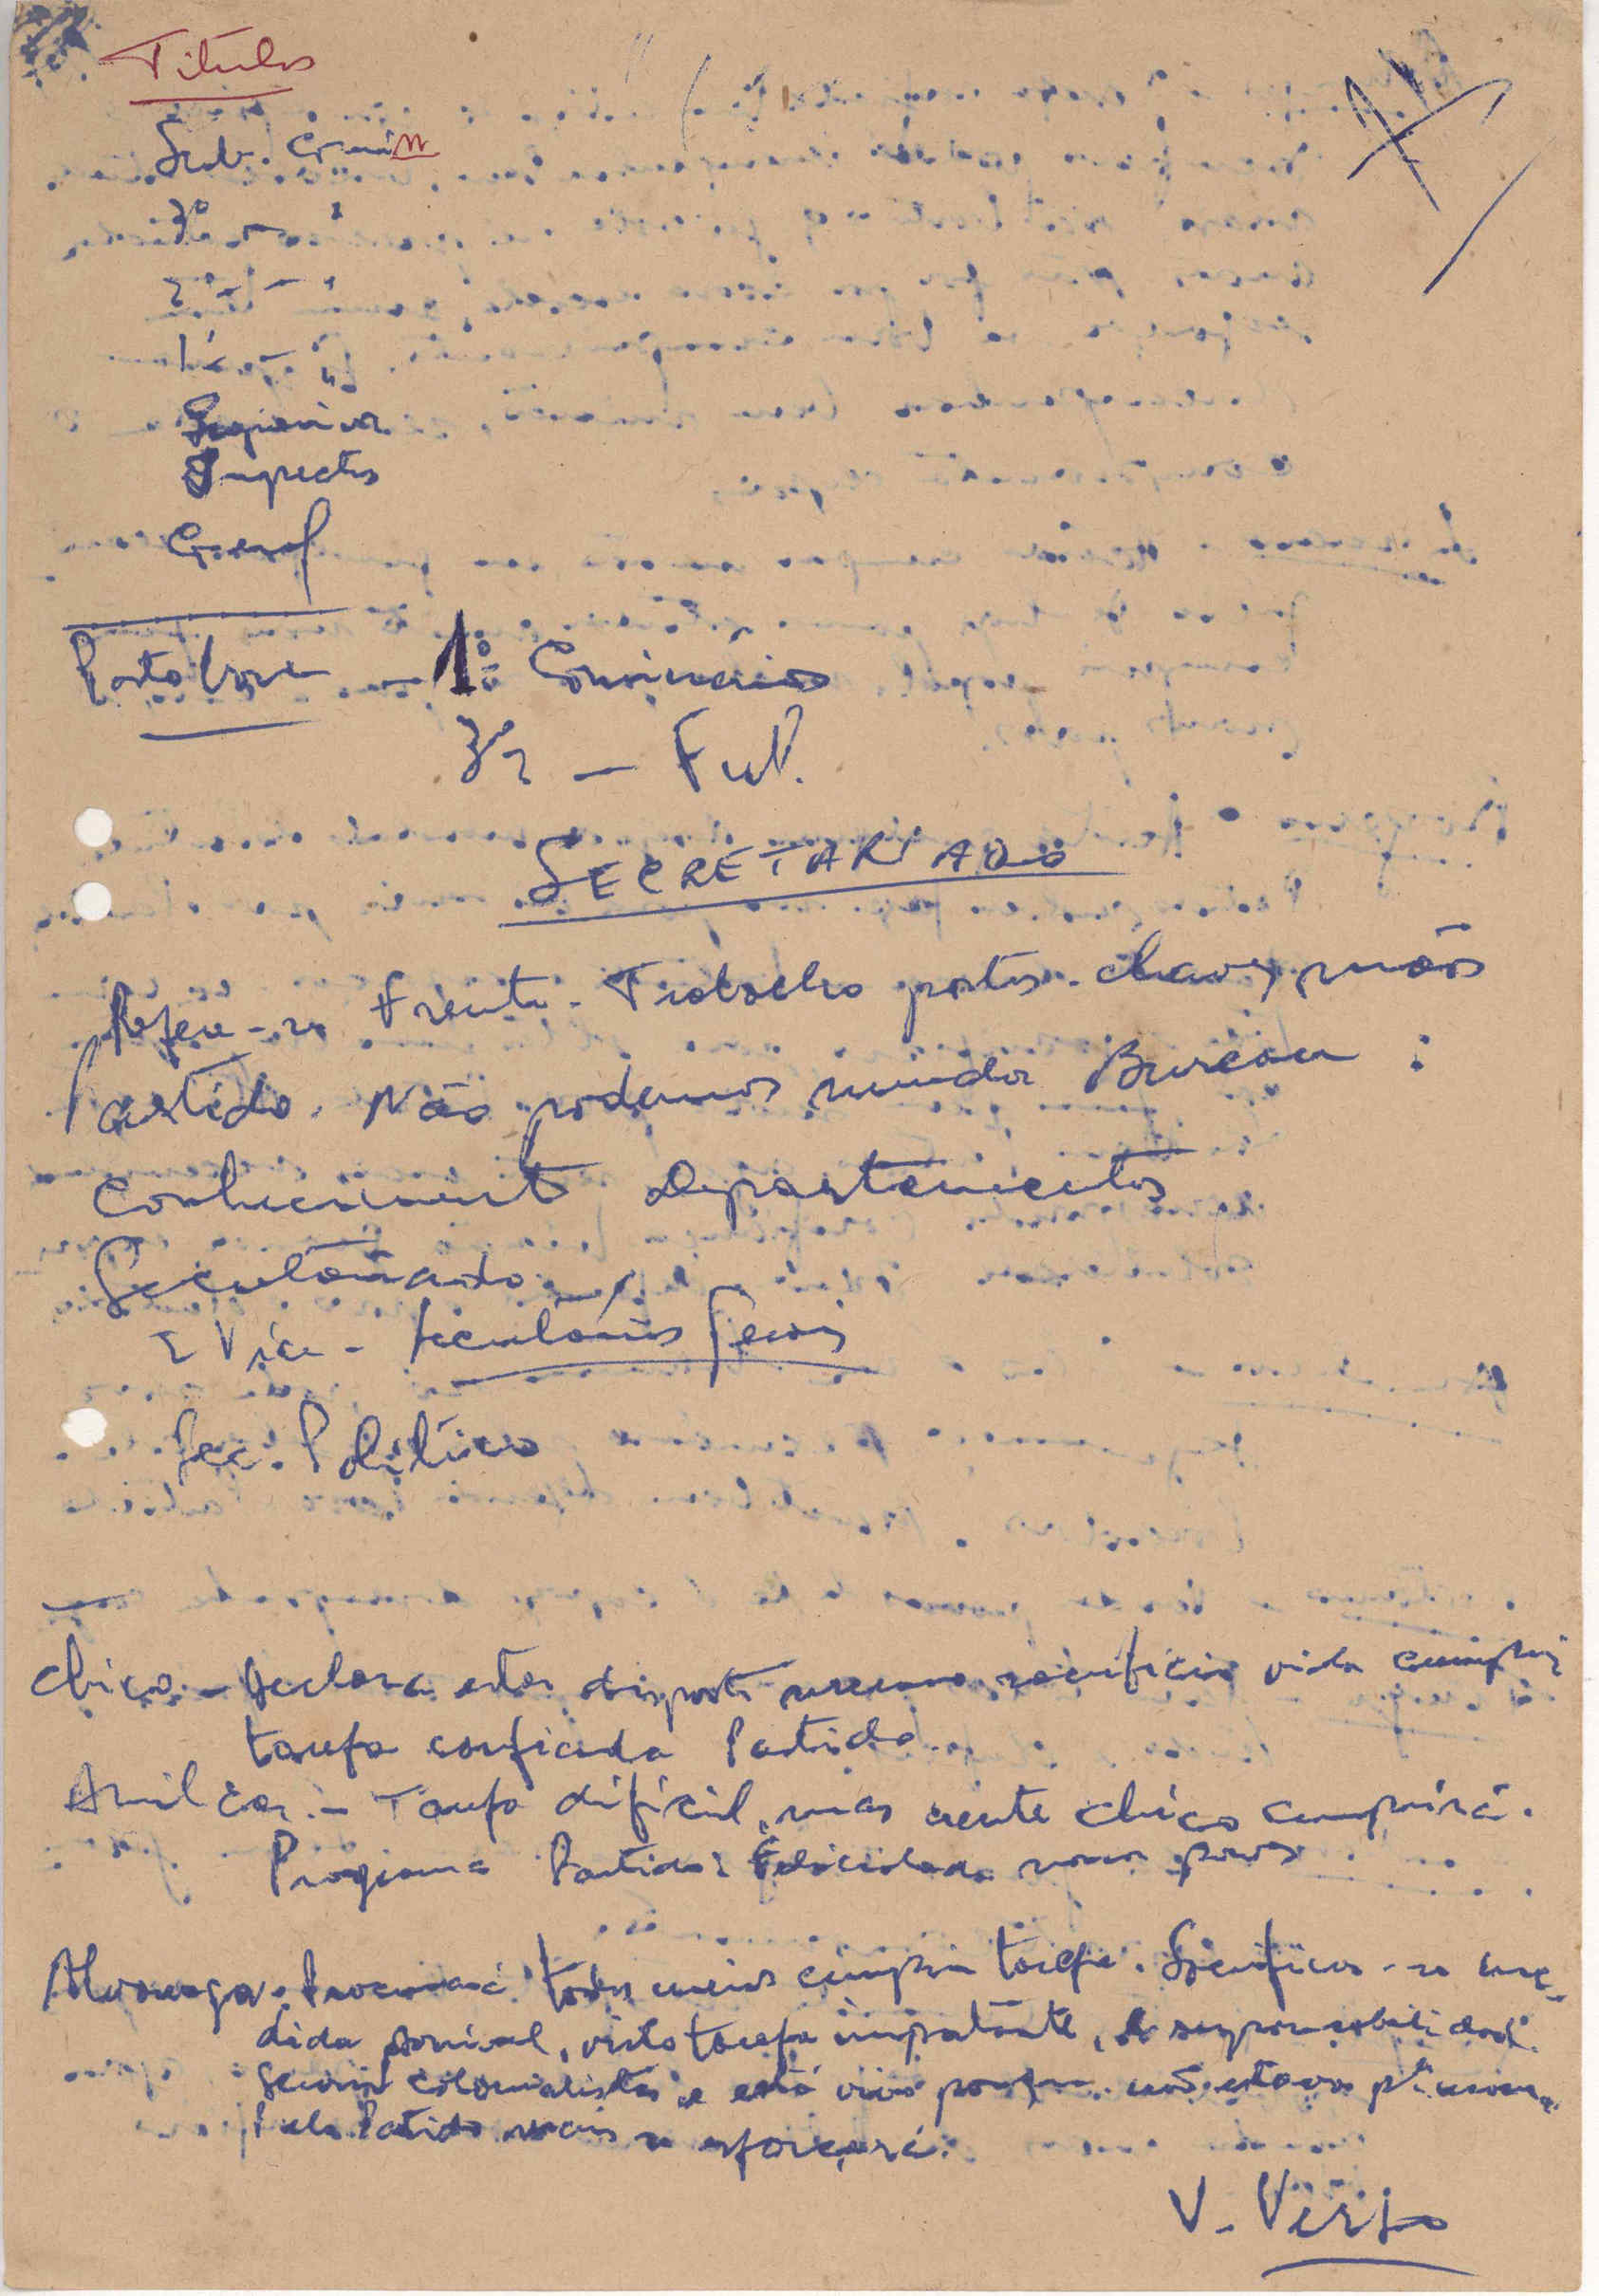 Titulos
Sub.
3º
2º - -
1º -
Superior
Inspector
General
Porto Vozes - 1º Comissário
3º - Ful.
SECRETARIADO
Refere-se frente - Trabalho postos-chaves, mãos
Partido. Não podemos mudar Bureau:
Conheciment Departamentos
Secretariado
2 Vice - Secretários Gerais
Sec. Político
Chico - Declara estar disposto mesmo sacrificar vida cumprir
tarefa confiada Partido.
Amilcar - Tarefa difícil, mas crente Chico cumprirá.
Programa Partido: Felicidade nosso povo
Alvarenga - Procurará todos meios cumprir tarefa. Sacrificar-se me-
dida possível, visto tarefa importante, responsabilidad.
Serviu colonialistas e está vivo porque não estava pª morrer.
Pelo Partido mais se esforçará.
V. Verso